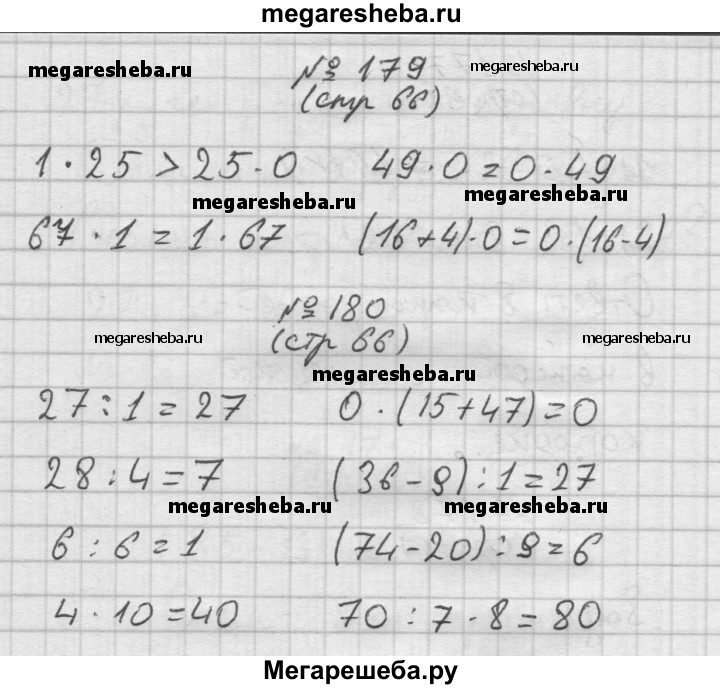 megaresheba.ru
megaresheba.ru № 179 megaresheba.ru
(стр 66)
1 · 25 > 25 · 0 49 · 0 = 0 · 49
megaresheba.ru megaresheba.ru
67 · 1 = 1 · 67 (16+4) · 0 = 0 · (16-4)
№ 180
megaresheba.ru (стр 66) megaresheba.ru
megaresheba.ru
27 : 1 = 27 0 · (15+47) = 0
28 : 4 = 7 (36 - 9) : 1 = 27
megaresheba.ru megaresheba.ru
6 : 6 = 1 (74 - 20) : 9 = 6
4 · 10 = 40 70 : 7 · 8 = 80
Мегарешеба.ру